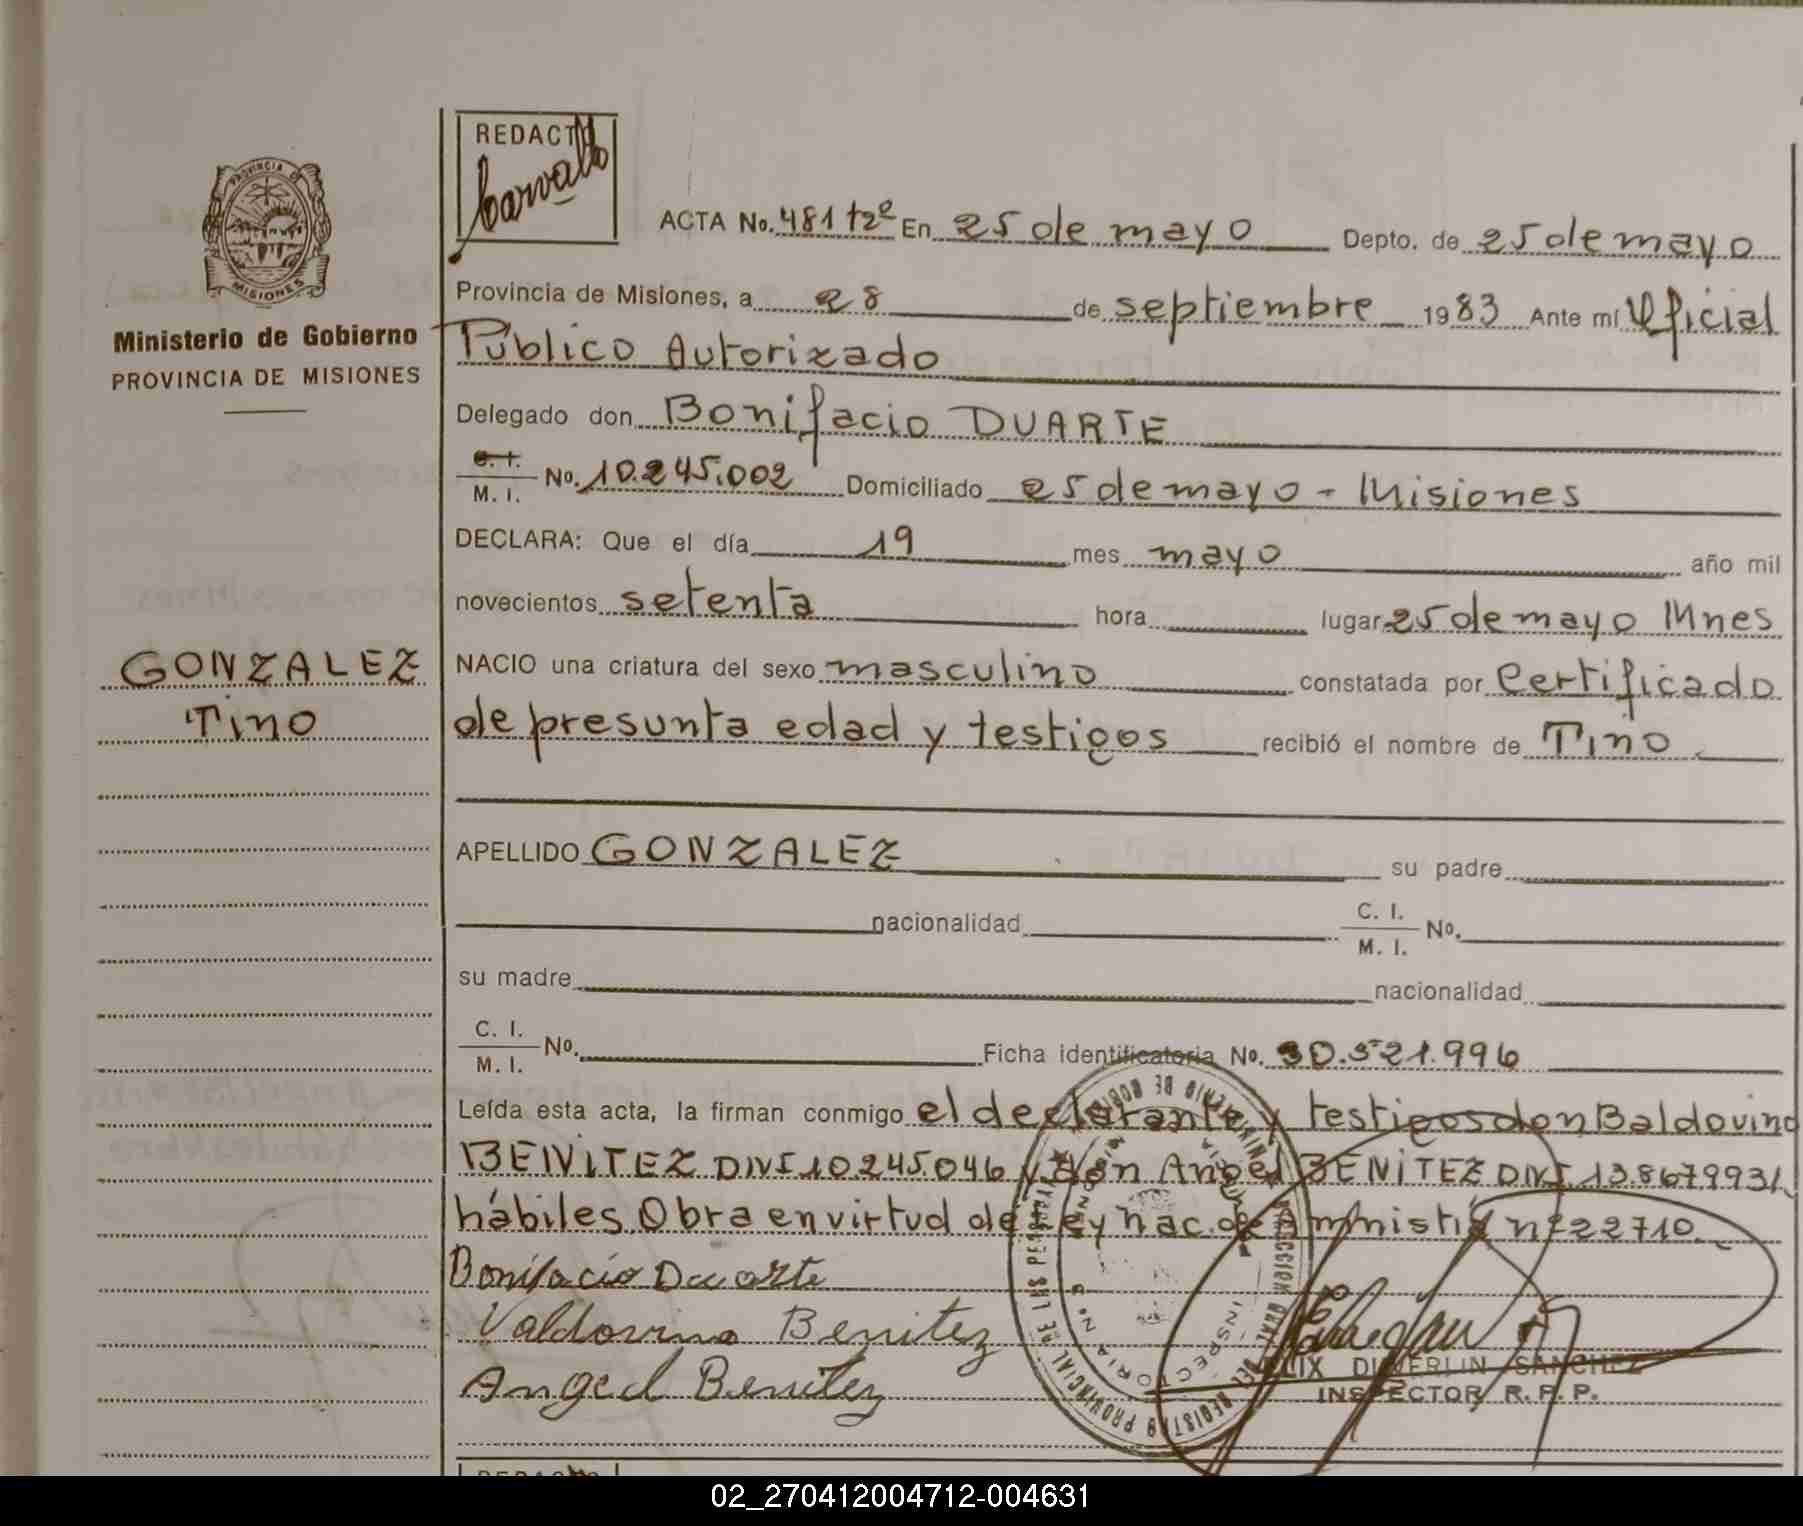 REDACTO
Carvallo
PROVINCIA DE
MISIONES
Ministerio de Gobierno
PROVINCIA DE MISIONES
ACTA No. 481 tº2º En 25 de mayo Depto. de 25 de mayo
Provincia de Misiones, a 28 de septiembre 1983 Ante mí Oficial
Público Autorizado
Delegado don Bonifacio DUARTE
C. I.
M. I. No. 10.245.002 Domiciliado 25 de mayo - Misiones
DECLARA: Que el día 19 mes mayo año mil
novecientos setenta hora lugar 25 de mayo Mnes
GONZALEZ
Tino
NACIO una criatura del sexo masculino constatada por Certificado
de presunta edad y testigos recibió el nombre de Tino
APELLIDO GONZALEZ su padre
nacionalidad C. I.
M. I. No.
su madre nacionalidad
C. I.
M. I. No. Ficha identificatoria No. 30.521.996
Leída esta acta, la firman conmigo el declarante y testigos don Baldovino
BENITEZ DNI 10.245.046 y don Angel BENITEZ DNI 13.867.993/
hábiles. Obra en virtud de ley nac. de Amnistía nº 22710.
Bonifacio Duarte
Valdovino Benitez
Angel Benitez
INSPECTOR R. P. P.
02_270412004712-004631